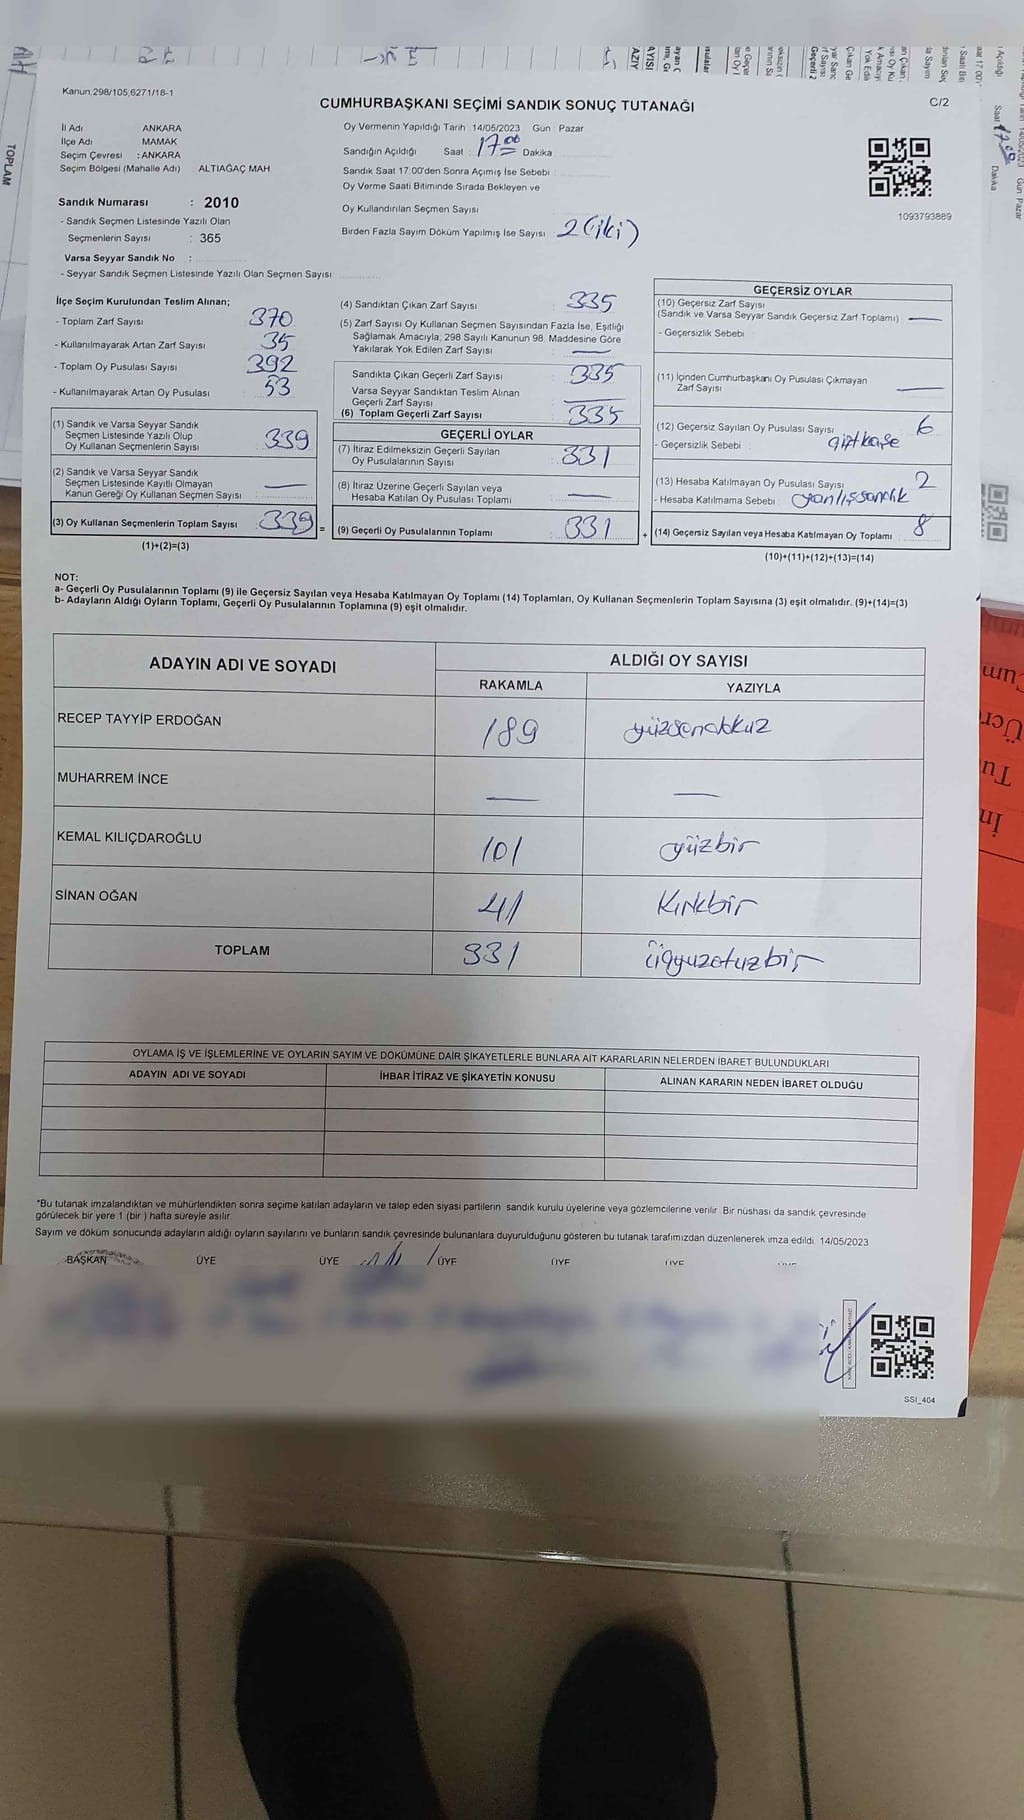 Kanun, 298/105,6271/18-1
CUMHURBAŞKANI SEÇİMİ SANDIK SONUÇ TUTANAĞI
C/2
İl Adı ANKARA
İlçe Adı MAMAK
Seçim Çevresi : ANKARA
Seçim Bölgesi (Mahalle Adı) ALTIAĞAÇ MAH
Sandık Numarası : 2010
- Sandık Seçmen Listesinde Yazılı Olan
Seçmenlerin Sayısı : 365
Varsa Seyyar Sandık No :
- Seyyar Sandık Seçmen Listesinde Yazılı Olan Seçmen Sayısı
Oy Vermenin Yapıldığı Tarih 14/05/2023 Gün : Pazar
Sandığın Açıldığı Saat : 17 00 Dakika
Sandık Saat 17:00'den Sonra Açımış İse Sebebi
Oy Verme Saati Bitiminde Sırada Bekleyen ve
Oy Kullandırılan Seçmen Sayısı
Birden Fazla Sayım Döküm Yapılmış İse Sayısı 2 (iki)
1093793889
İlçe Seçim Kurulundan Teslim Alınan;
- Toplam Zarf Sayısı 370
- Kullanılmayarak Artan Zarf Sayısı 35
- Toplam Oy Pusulası Sayısı 392
- Kullanılmayarak Artan Oy Pusulası 53
(1) Sandık ve Varsa Seyyar Sandık
Seçmen Listesinde Yazılı Olup
Oy Kullanan Seçmenlerin Sayısı 339
(2) Sandık ve Varsa Seyyar Sandık
Seçmen Listesinde Kayıtlı Olmayan
Kanun Gereği Oy Kullanan Seçmen Sayısı —
(3) Oy Kullanan Seçmenlerin Toplam Sayısı 339 =
(1)+(2)=(3)
(4) Sandıktan Çıkan Zarf Sayısı 335
(5) Zarf Sayısı Oy Kullanan Seçmen Sayısından Fazla İse, Eşitliği
Sağlamak Amacıyla, 298 Sayılı Kanunun 98. Maddesine Göre
Yakılarak Yok Edilen Zarf Sayısı —
Sandıkta Çıkan Geçerli Zarf Sayısı 335
Varsa Seyyar Sandıktan Teslim Alınan
Geçerli Zarf Sayısı —
(6) Toplam Geçerli Zarf Sayısı 335
GEÇERLİ OYLAR
(7) İtiraz Edilmeksizin Geçerli Sayılan
Oy Pusulalarının Sayısı 331
(8) İtiraz Üzerine Geçerli Sayılan veya
Hesaba Katılan Oy Pusulası Toplamı —
(9) Geçerli Oy Pusulalarının Toplamı 331 +
GEÇERSİZ OYLAR
(10) Geçersiz Zarf Sayısı
(Sandık ve Varsa Seyyar Sandık Geçersiz Zarf Toplamı) —
- Geçersizlik Sebebi :
(11) İçinden Cumhurbaşkanı Oy Pusulası Çıkmayan
Zarf Sayısı —
(12) Geçersiz Sayılan Oy Pusulası Sayısı 6
- Geçersizlik Sebebi : çift kaşe
(13) Hesaba Katılmayan Oy Pusulası Sayısı 2
- Hesaba Katılmama Sebebi : yanlış sandık
(14) Geçersiz Sayılan veya Hesaba Katılmayan Oy Toplamı 8
(10)+(11)+(12)+(13)=(14)
NOT:
a- Geçerli Oy Pusulalarının Toplamı (9) ile Geçersiz Sayılan veya Hesaba Katılmayan Oy Toplamı (14) Toplamları, Oy Kullanan Seçmenlerin Toplam Sayısına (3) eşit olmalıdır. (9)+(14)=(3)
b- Adayların Aldığı Oyların Toplamı, Geçerli Oy Pusulalarının Toplamına (9) eşit olmalıdır.
ADAYIN ADI VE SOYADI
ALDIĞI OY SAYISI
RAKAMLA YAZIYLA
RECEP TAYYİP ERDOĞAN 189 yüzsendokuz
MUHARREM İNCE — —
KEMAL KILIÇDAROĞLU 101 yüzbir
SİNAN OĞAN 41 Kırkbir
TOPLAM 331 üçyuzotuzbir
OYLAMA İŞ VE İŞLEMLERİNE VE OYLARIN SAYIM VE DÖKÜMÜNE DAİR ŞİKAYETLERLE BUNLARA AİT KARARLARIN NELERDEN İBARET BULUNDUKLARI
ADAYIN ADI VE SOYADI İHBAR İTİRAZ VE ŞİKAYETİN KONUSU ALINAN KARARIN NEDEN İBARET OLDUĞU
*Bu tutanak imzalandıktan ve mühürlendikten sonra seçime katılan adayların ve talep eden siyasi partilerin sandık kurulu üyelerine veya gözlemcilerine verilir. Bir nüshası da sandık çevresinde
görülecek bir yere 1 (bir ) hafta süreyle asılır.
Sayım ve döküm sonucunda adayların aldığı oyların sayılarını ve bunların sandık çevresinde bulunanlara duyurulduğunu gösteren bu tutanak tarafımızdan düzenlenerek imza edildi. 14/05/2023
BAŞKAN ÜYE ÜYE ÜYE ÜYE ÜYE
SSI_404
TOPLAM